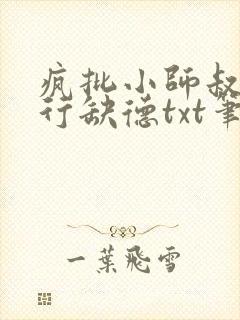 疯批小師叔
行缺德txt筆
一葉飛雪